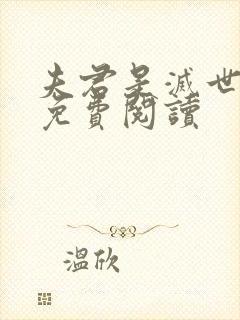 夫君是滅世
免費閱讀
溫欣